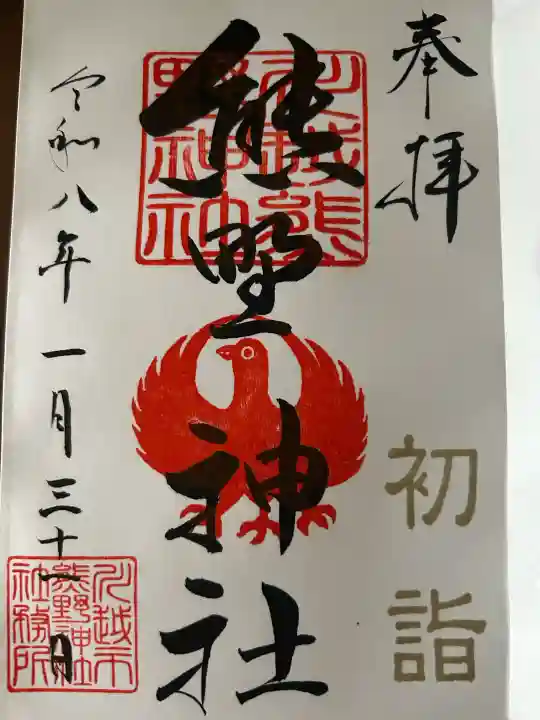 奉拝
初詣
熊野神社
川越熊
野神社
令和八年一月三十一日
川越市
熊野神
社務所